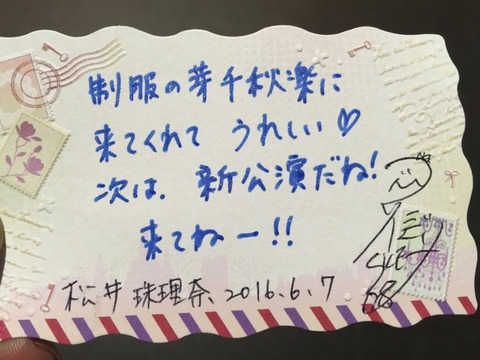 制服の芽千秋楽に
来てくれて うれしい♡
次は、新公演だね!
来てねー!!
松井 珠理奈、2016.6.7